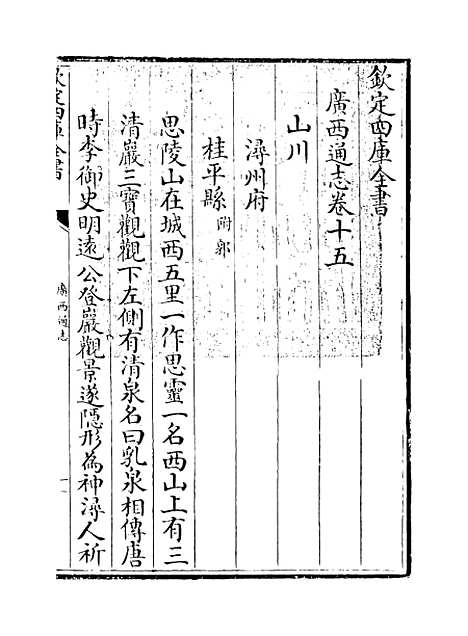 欽定四庫全書
廣西通志卷十五
山川
潯州府
桂平縣附郭
思陵山在城西五里一作思靈一名西山上有三
清巖三寶觀觀下左側有清泉名曰乳泉相傳唐
時李御史明遠公登巖觀景遂隱形為神潯人祈
欽定四庫全書
廣西通志
一